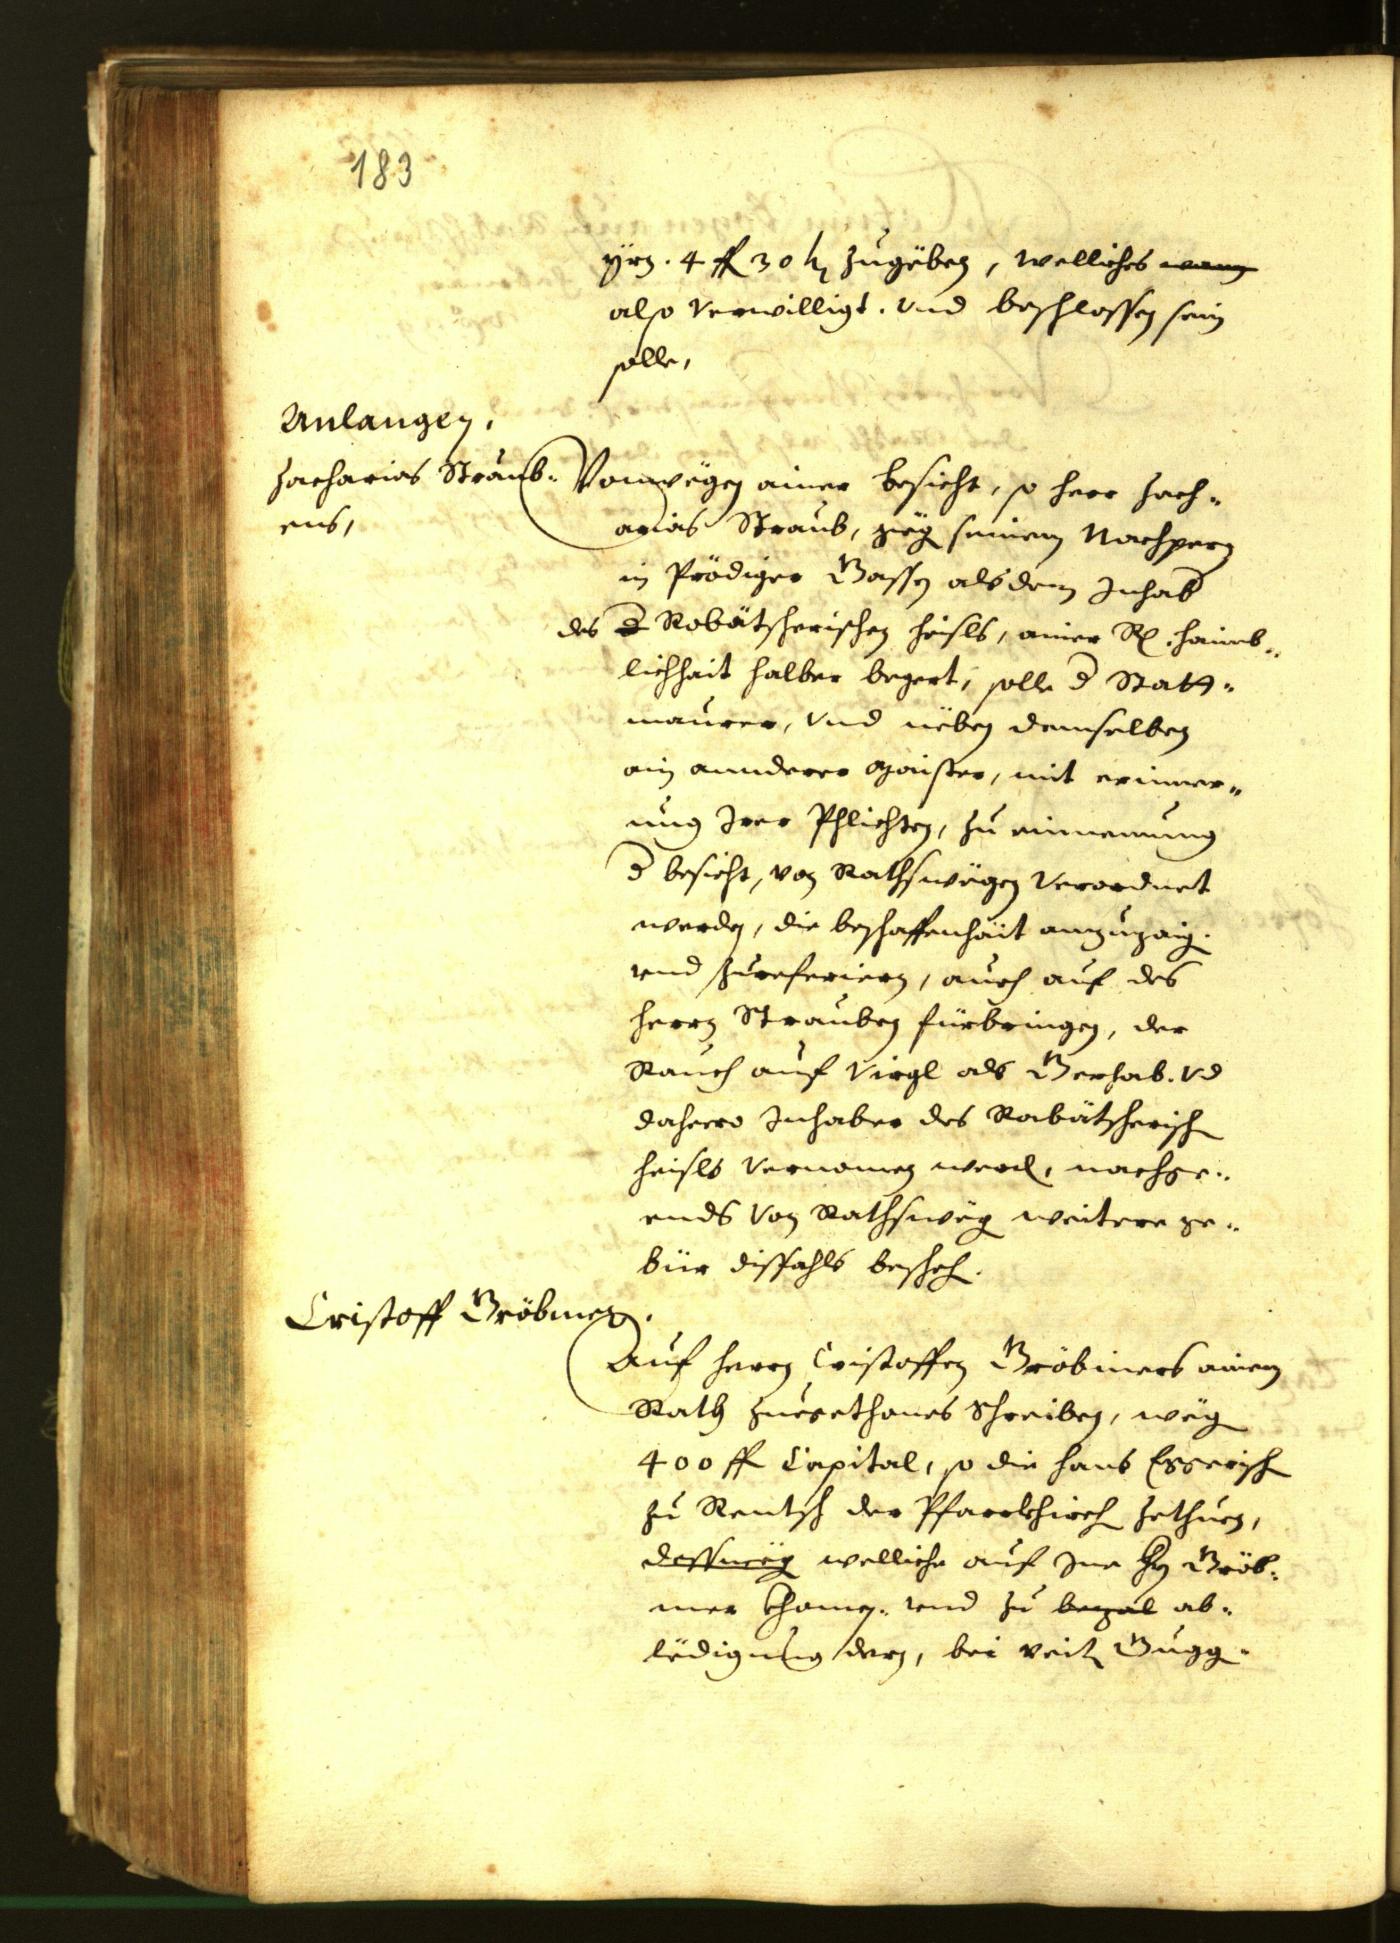 183
yrn. 4 fl 30 kr zugeben, welliches wann
also verwilligt. Und beschlossen sein
solle,
Anlangen,
Zacharias Straub-
ens,
Vonwëgen ainer besicht, so herr Zach-
arias Straub, gëg seinem Nachpern
in Prödiger Gassen als dem Inhab
des d Robätscherischen heisls, ainer R. haimb-
lichhait halber begert, solle d Statt-
maurer, Und nëben demselben
ain annderer Maister, mit erinner-
ung Irer Phlichten, zu einnemung
d besicht, von Rathswëgen Verordnet
werden, die beschaffenhait anzuzaig.
und zureferiern, auch auf des
herrn Strauben fürbringen, der
Rauch auf Virgl als Gerhab. Vd
dahero Inhaber des Rabätscherisch
heisls Vernomen werd, nachge-
ends Von Rathswëg weitere ge-
bür dissfahls bescheh.
Cristoff Gröbmer.
Auf herrn Cristoffen Gröbmers ainem
Rath zuegethones Schreiben, wëg
400 fl Capital, so die hans Eggerisch
zu Rentsch der Pfarrkhirch zethuen,
desswëg welliche auf Ine Hn Gröb-
mer khomen. und zu bezal ab-
lëdigung dern, bei Veit Gugg-